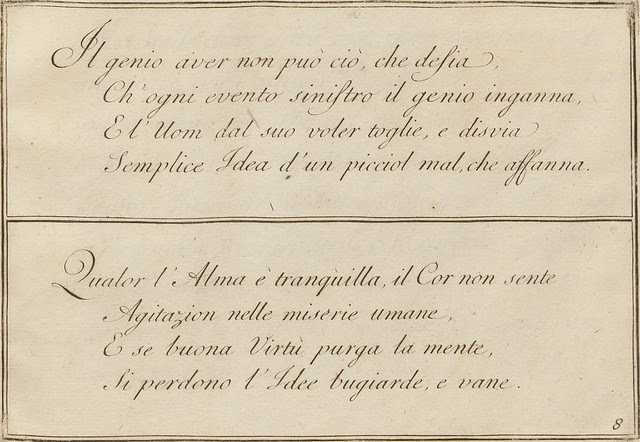 Il genio aver non può ciò, che desia,
Ch'ogni evento sinistro il genio inganna,
E l'Uom dal suo voler toglie, e disvia
Semplice Idea d'un picciol mal, che affanna.
Qualor l'Alma è tranquilla, il Cor non sente
Agitazion nelle miserie umane,
E se buona Virtù purga la mente,
Si perdono l'Idee bugiarde, e vane.
8